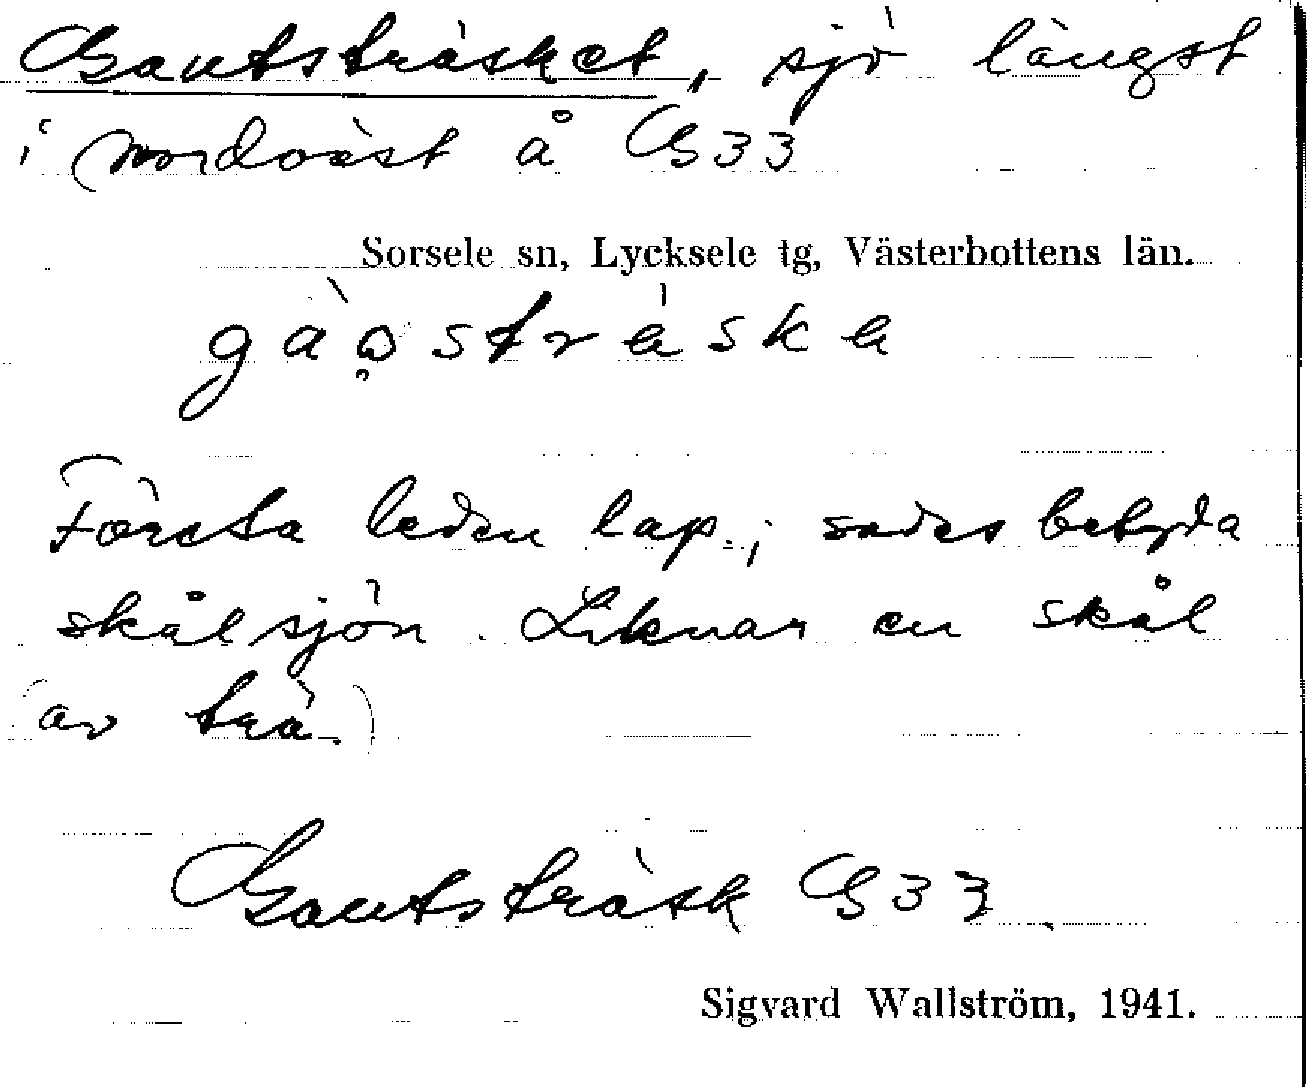 Gautsträsket, sjö längst
i nordväst å G33
Sorsele sn, Lycksele tg, Västerbottens län.
gào̥stráska
Första leden lap.; sades betyda
skålsjön. Liknar en skål
(av trä.)
Gautsträsk G33
Sigvard Wallström, 1941.